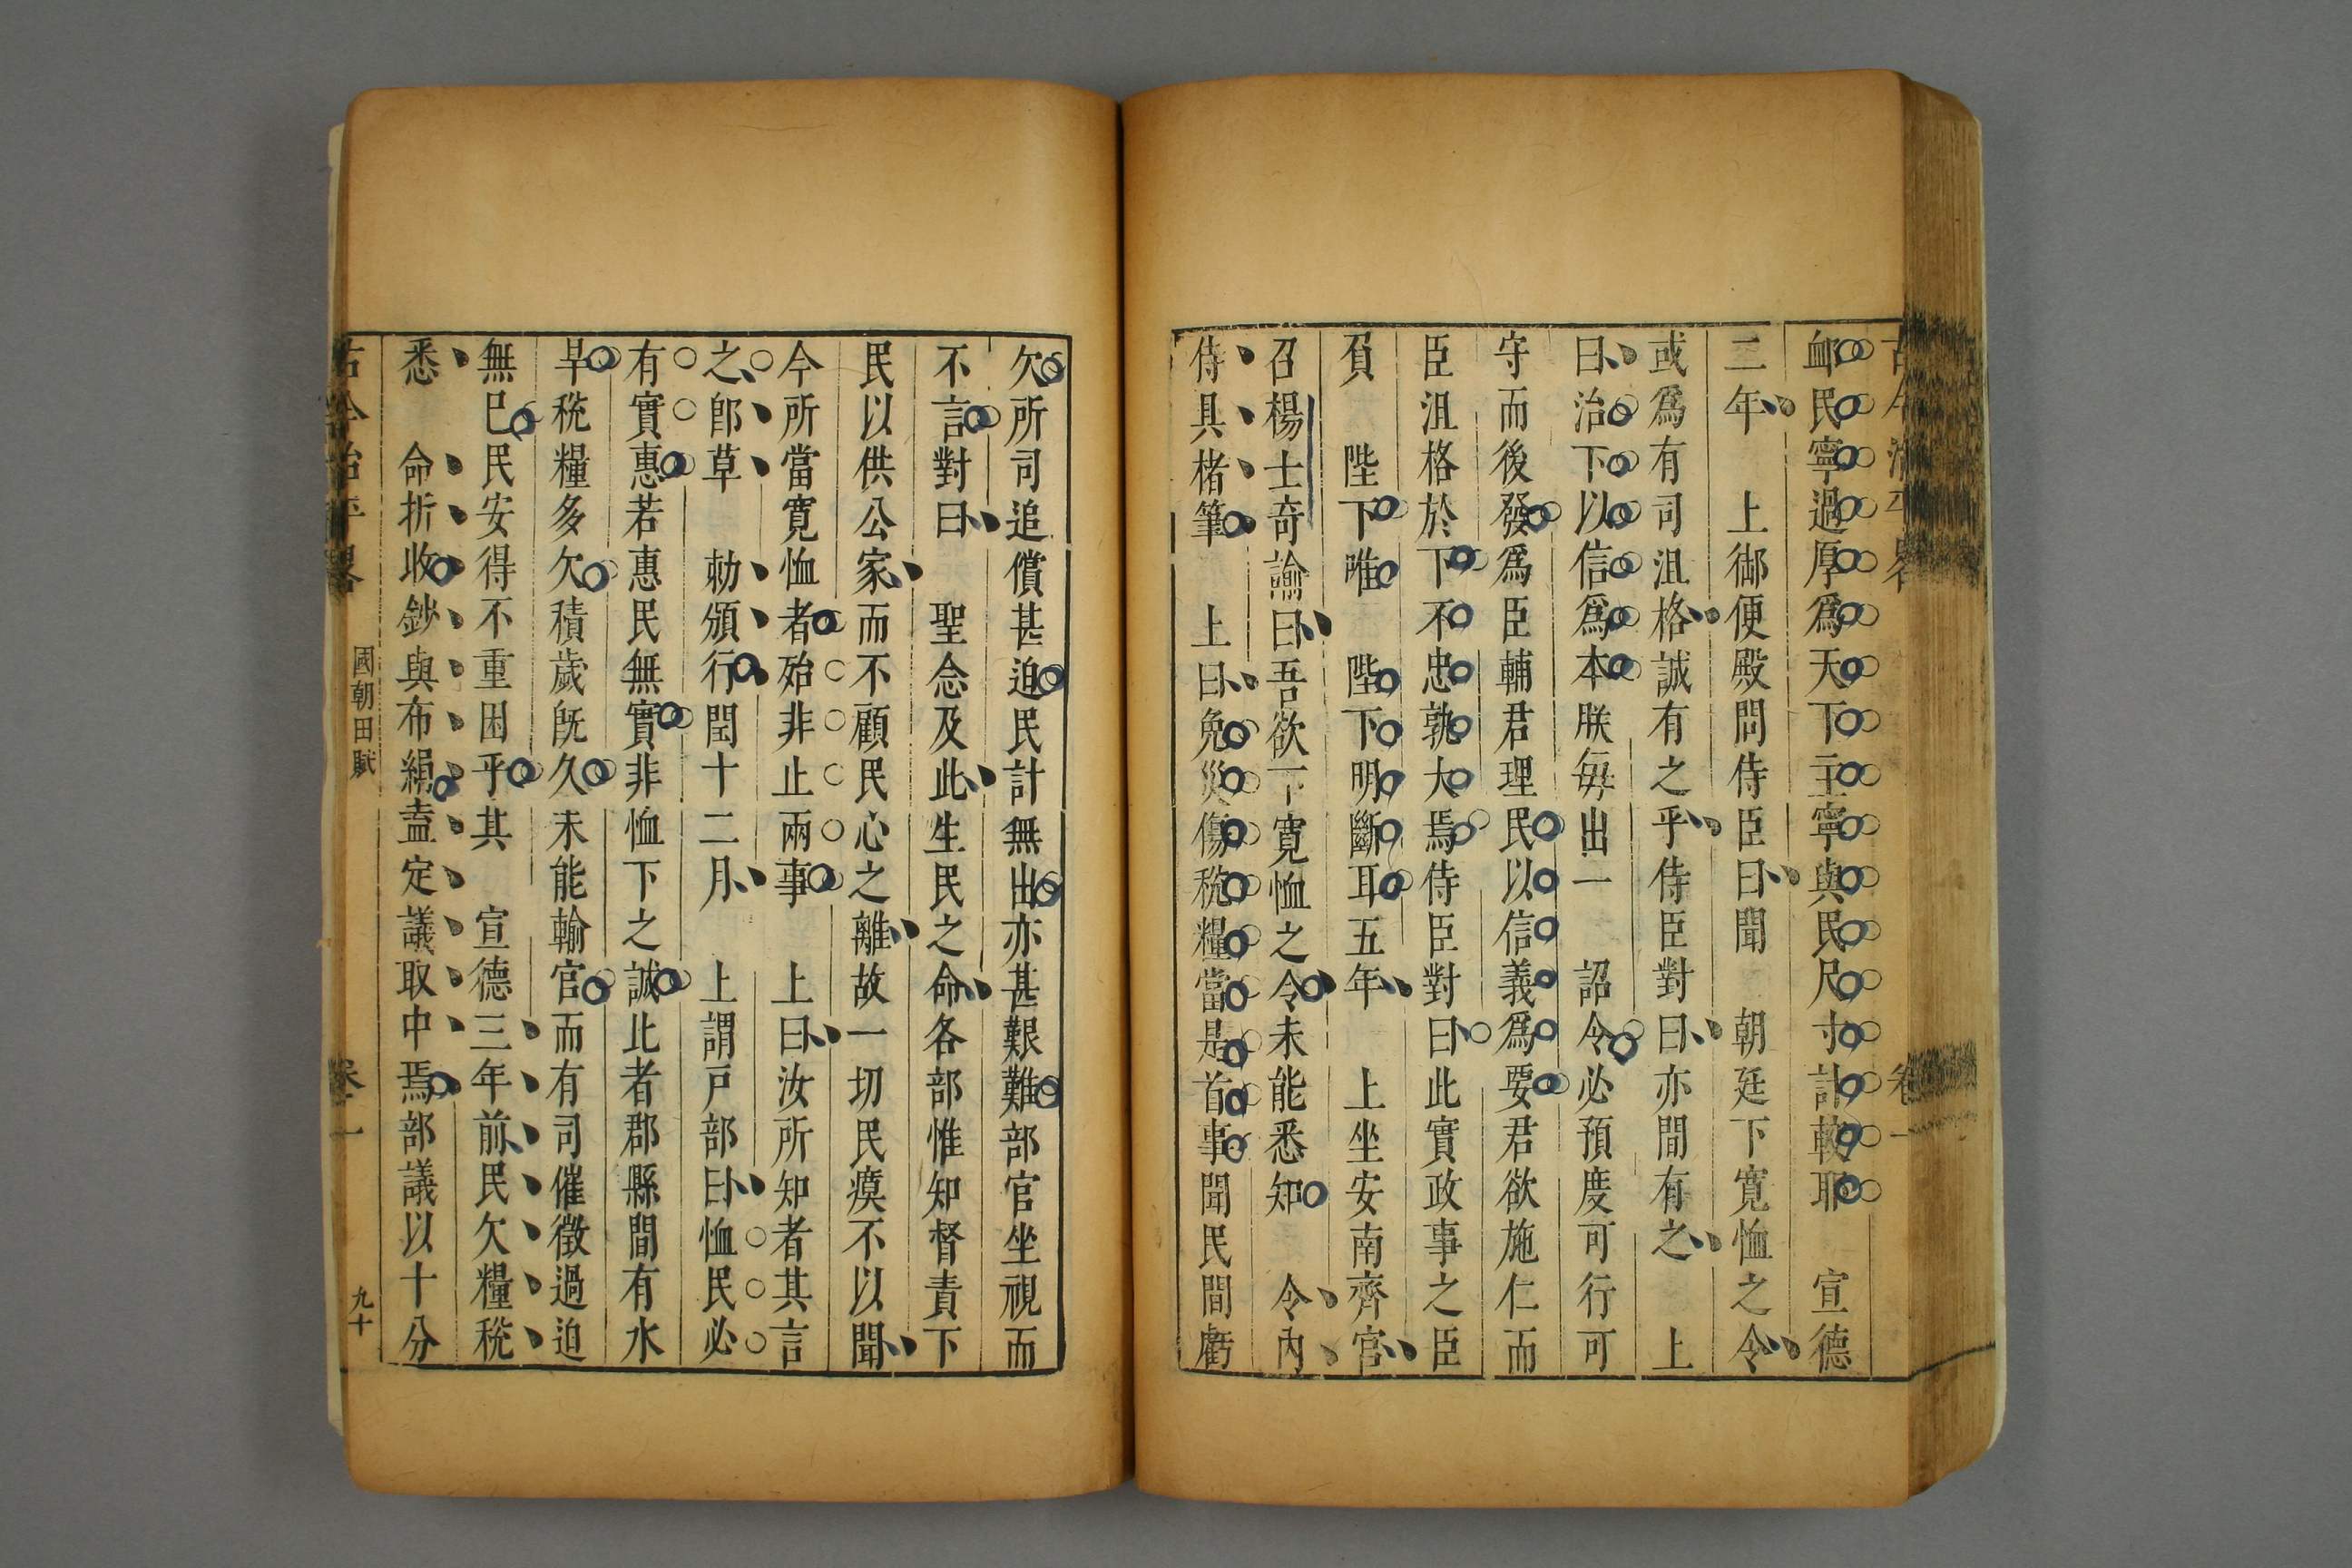 古今治平畧 卷一
卹民寧過厚爲天下主寧與民尺寸計較耶 宣德
二年 上御便殿問侍臣曰聞 朝廷下寬恤之令
或爲有司沮格誠有之乎侍臣對曰亦間有之 上
曰治下以信爲本朕每出一 詔令必預度可行可
守而後發爲臣輔君理民以信義爲要君欲施仁而
臣沮格於下不忠孰大焉侍臣對曰此實政事之臣
負 陛下唯 陛下明斷耳五年 上坐安南齊官
召楊士奇諭曰吾欲下寛恤之令未能悉知 令內
侍具楮筆 上曰免災傷稅糧當是首事聞民間虧
欠所司追償甚迫民計無出亦甚艱難部官坐視而
不言對曰 聖念及此生民之命各部惟知督責下
民以供公家而不顧民心之離故一切民瘼不以聞
今所當寛恤者殆非止兩事 上曰汝所知者其言
之卽草 勑頒行閏十二月 上謂戶部曰恤民必
有實惠若惠民無實非恤下之誠此者郡縣間有水
旱稅糧多欠積歲旣久未能輸官而有司催徵過迫
無已民安得不重困乎其 宣德三年前民欠糧稅
悉 命折收鈔與布絹葢定議取中焉部議以十分
古今治平畧 國朝田賦 卷一 九十